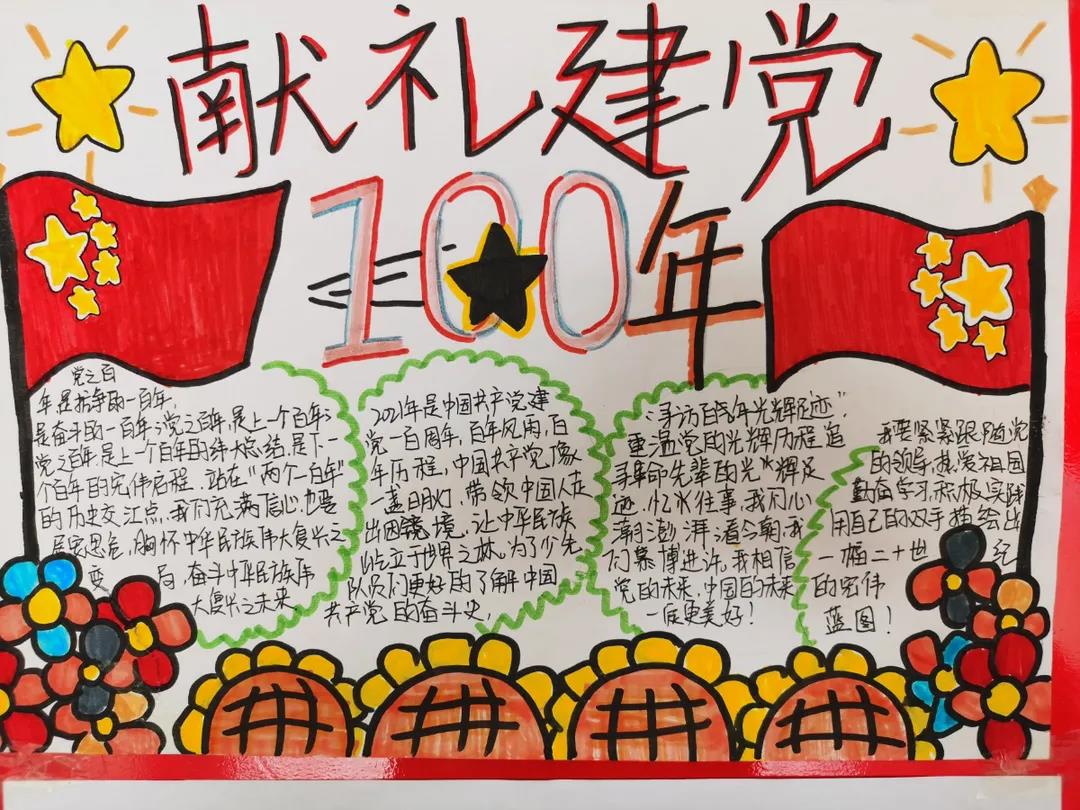 献礼建党
100年
党之百
年是抗争的一百年,
是奋斗的一百年;党之百年,是上一个百年;
党之百年,是上一个百年的伟大总结,是下一
个百年的宏伟启程.站在"两个一百年"
的历史交汇点,我们充满信心,也要
居安思危,胸怀中华民族伟大复兴之
变局,奋斗中华民族伟
大复兴之未来
2021年是中国共产党建
党一百周年,百年风雨,百
年历程,中国共产党像
一盏明灯,带领中国人走
出困境,让中华民族
屹立于世界之林.为了少先
队员们更好的了解中国
共产党的奋斗史,
"寻访百年光辉足迹"
重温党的光辉历程追
寻革命先辈的光辉足
迹.忆水往事,我们心
潮澎湃;看今朝,我
们慕博进许.我相信
党的未来,中国的未来
一定更美好!
我要紧紧跟随党
的领导,热爱祖国
勤奋学习,积极实践
用自己的双手描绘出
一幅二十世纪
的宏伟
蓝图!